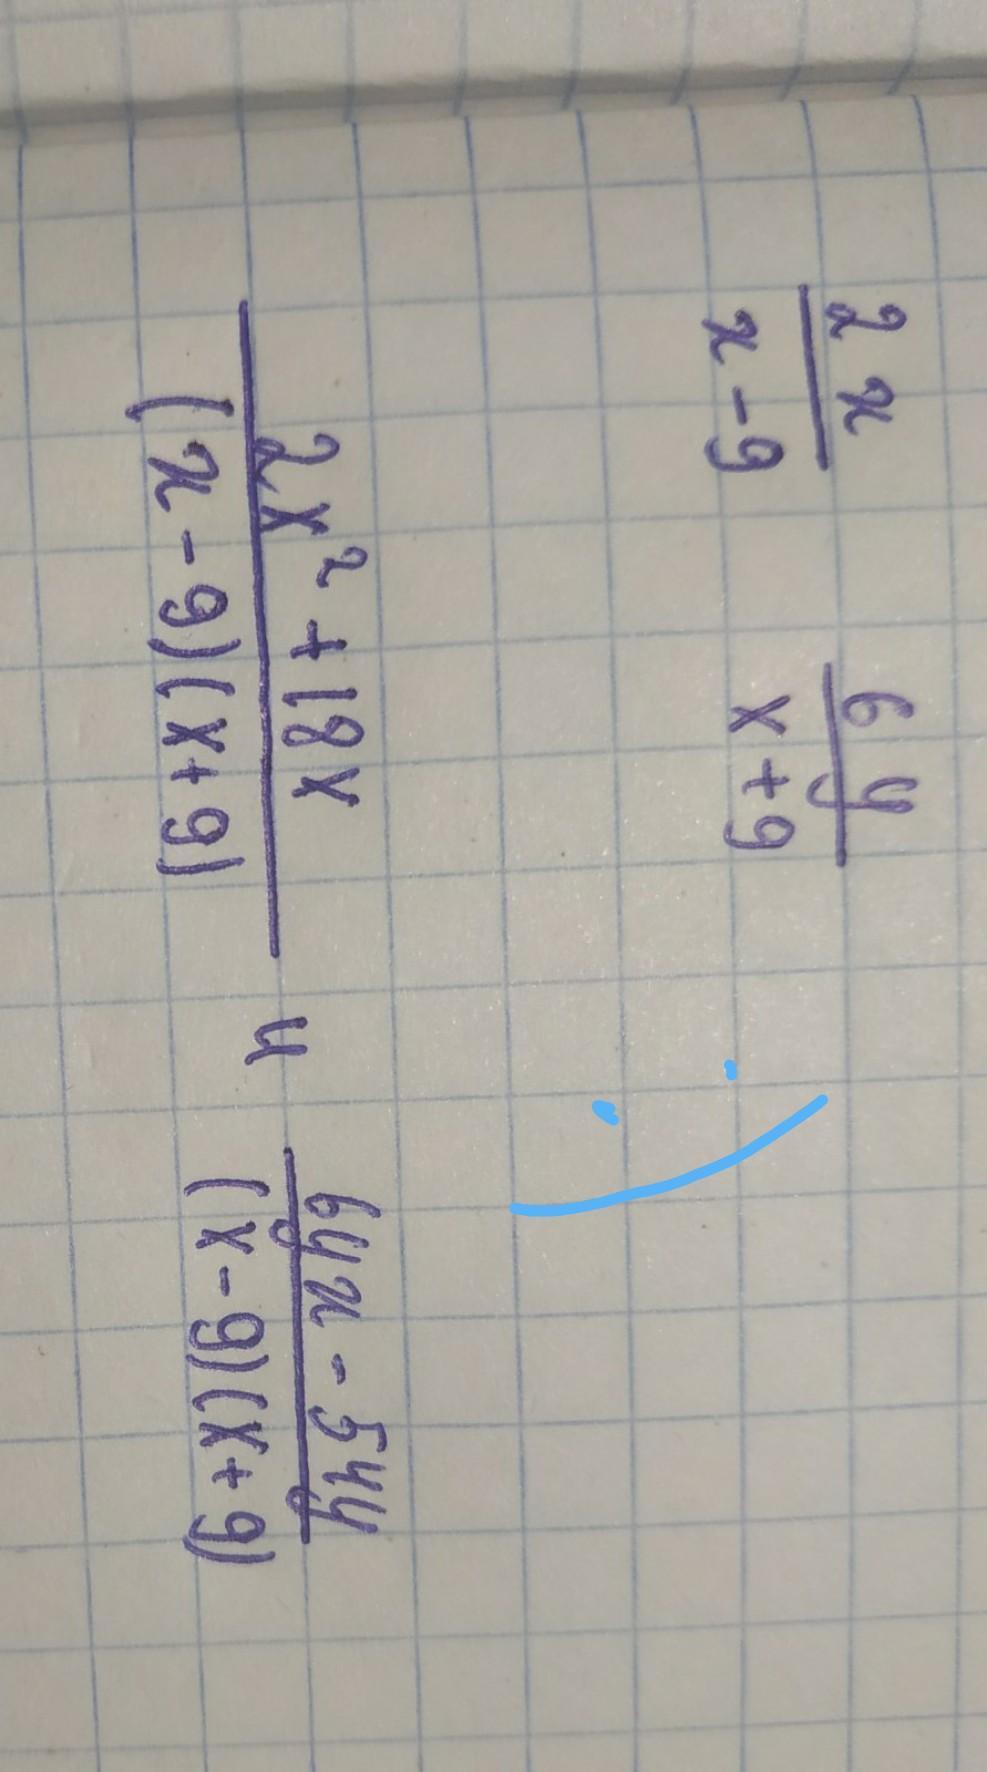 2x/(x-9) 6y/(x+9)
(2x²+18x)/((x-9)(x+9)) и (6yx-54y)/((x-9)(x+9))